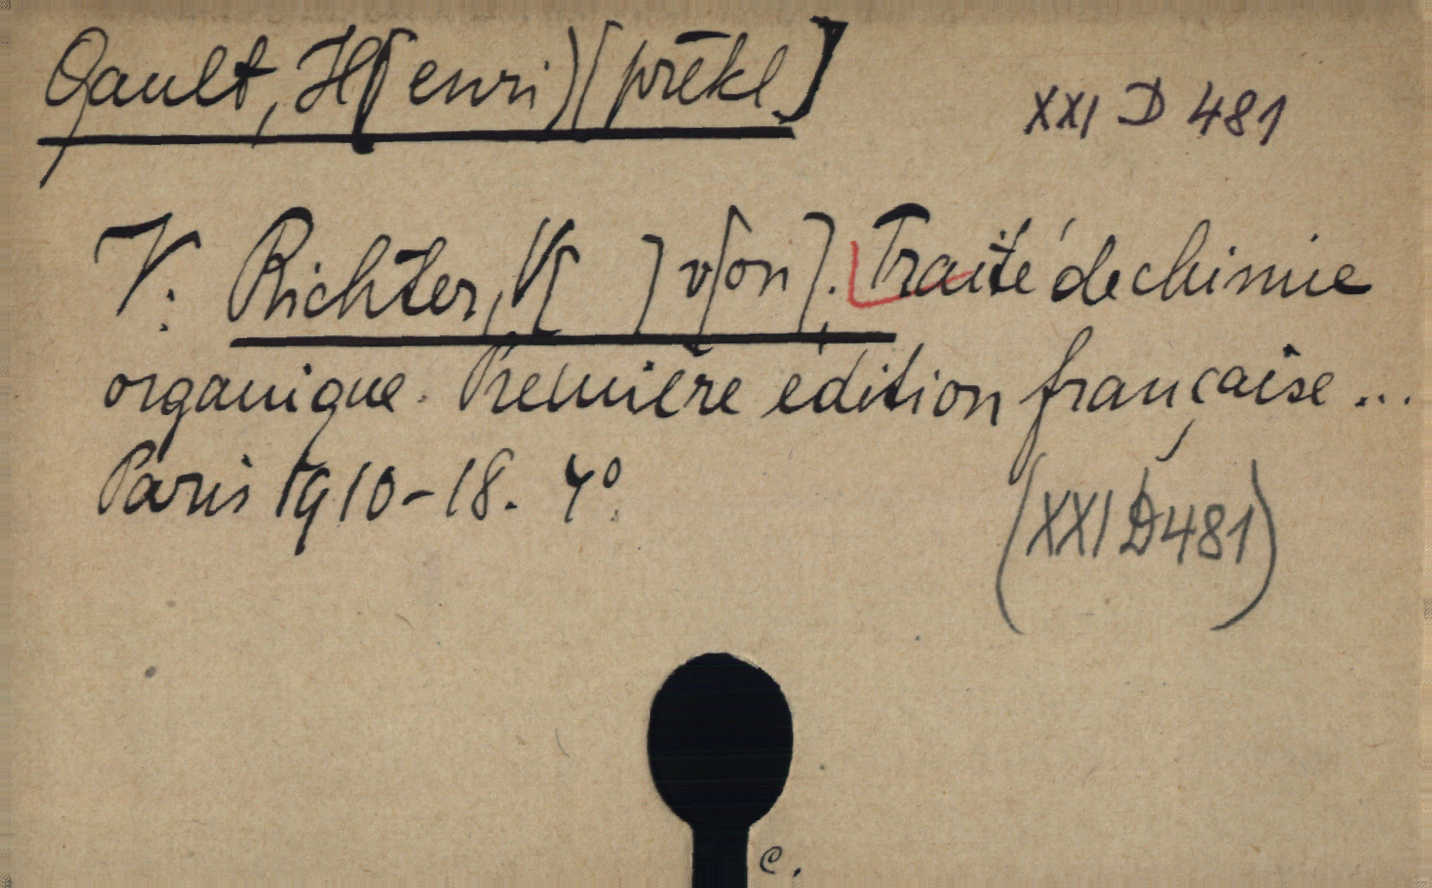 Gault, H[enri) [překl]
XXI D 481
V: Richter, V[ ] v[on]. Traité de chimie
organique. Première édition française...
Paris 1910-18. 4°.
(XXI D 481)
c.